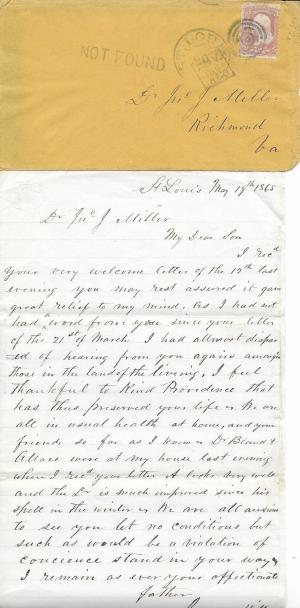 NOT FOUND
ST. LOUIS
Dr Jno J Miller
Richmond
Va
St Louis May 19th 1865
Dr Jno J Miller
My Dear Son
I recd
your very welcome letter of the 12th last
evening you may rest assured it gave
great relief to my mind. As I had not
had a word from you since your letter
of the 21st of March I had allmost dispar
ed of hearing from you again amongst
those in the land of the living, I feel
thankful to Kind Providence that
has thus preserved your life & We are
all in usual health at home, and your
friends so far as I know & Dr Bland &
were at my house last evening
when I recd your letter. A looks very well
and the Dr is much improved since his
spell in the winter & We are all anxious
to see you let no conditions but
such as would be a violation of
concience stand in your way &
I remain as ever your affectionate
father